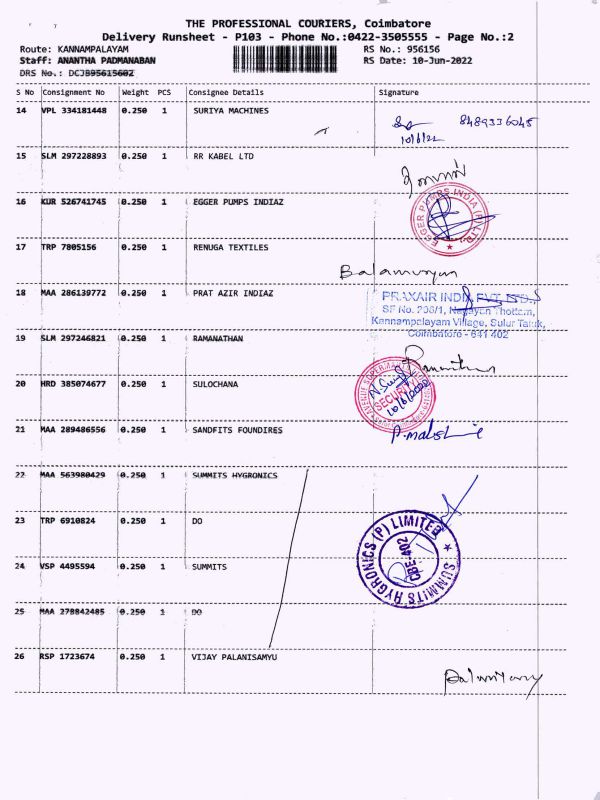 THE PROFESSIONAL COURIERS, Coimbatore
Delivery Runsheet - P103 - Phone No.:0422-3505555 - Page No.:2
Route: KANNAMPALAYAM RS No.: 956156
Staff: ANANTHA PADMANABAN RS Date: 10-Jun-2022
DRS No.: DCJ895615602
S No Consignment No Weight PCS Consignee Details Signature
14 VPL 334181448 0.250 1 SURIYA MACHINES
8489336045
10/6/22
15 SLM 297228893 0.250 1 RR KABEL LTD
16 KUR 526741745 0.250 1 EGGER PUMPS INDIAZ
EGGER PUMPS INDIA (P) LTD.
17 TRP 7805156 0.250 1 RENUGA TEXTILES
Balamurugan
18 MAA 286139772 0.250 1 PRAT AZIR INDIAZ
PRAXAIR INDIA PVT. LTD.,
SF No. 206/1, Nagayan Thottam,
Kannampalayam Village, Sulur Taluk,
Coimbatore - 641 402
19 SLM 297246821 0.250 1 RAMANATHAN
20 HRD 385074677 0.250 1 SULOCHANA
SECURITY
21 MAA 289486556 0.250 1 SANDFITS FOUNDIRES
22 MAA 563980429 0.250 1 SUMMITS HYGRONICS
23 TRP 6910824 0.250 1 DO
SUMMITS HYGRONICS (P) LIMITED
CBE-402
24 VSP 4495594 0.250 1 SUMMITS
25 MAA 278842485 0.250 1 DO
26 RSP 1723674 0.250 1 VIJAY PALANISAMYU